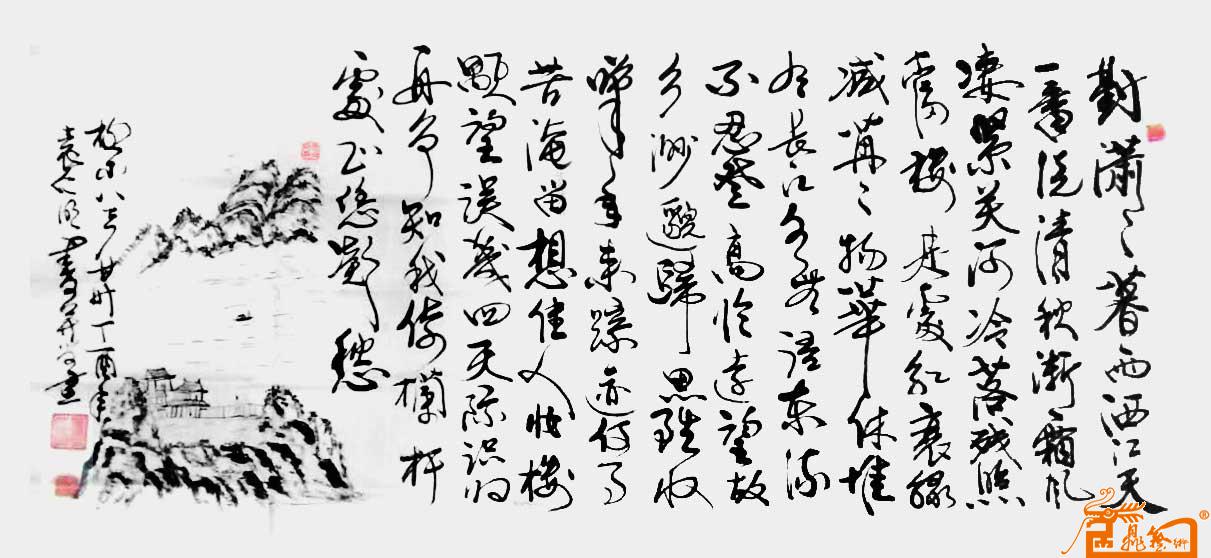 對瀟々暮雨洒江天
一番洗清秋漸霜風
凄緊关河冷落殘照
當樓是處紅衰綠
減苒々物華休惟
有長江水無語東流
不忍登高臨遠望故
鄉渺邈歸思難收
嘆年々來蹤迹何事
苦淹留想佳人妝樓
顒望誤幾回天際识归
舟争知我倚欄杆
處正恁凝愁
柳永八声甘州丁酉年
書并畫